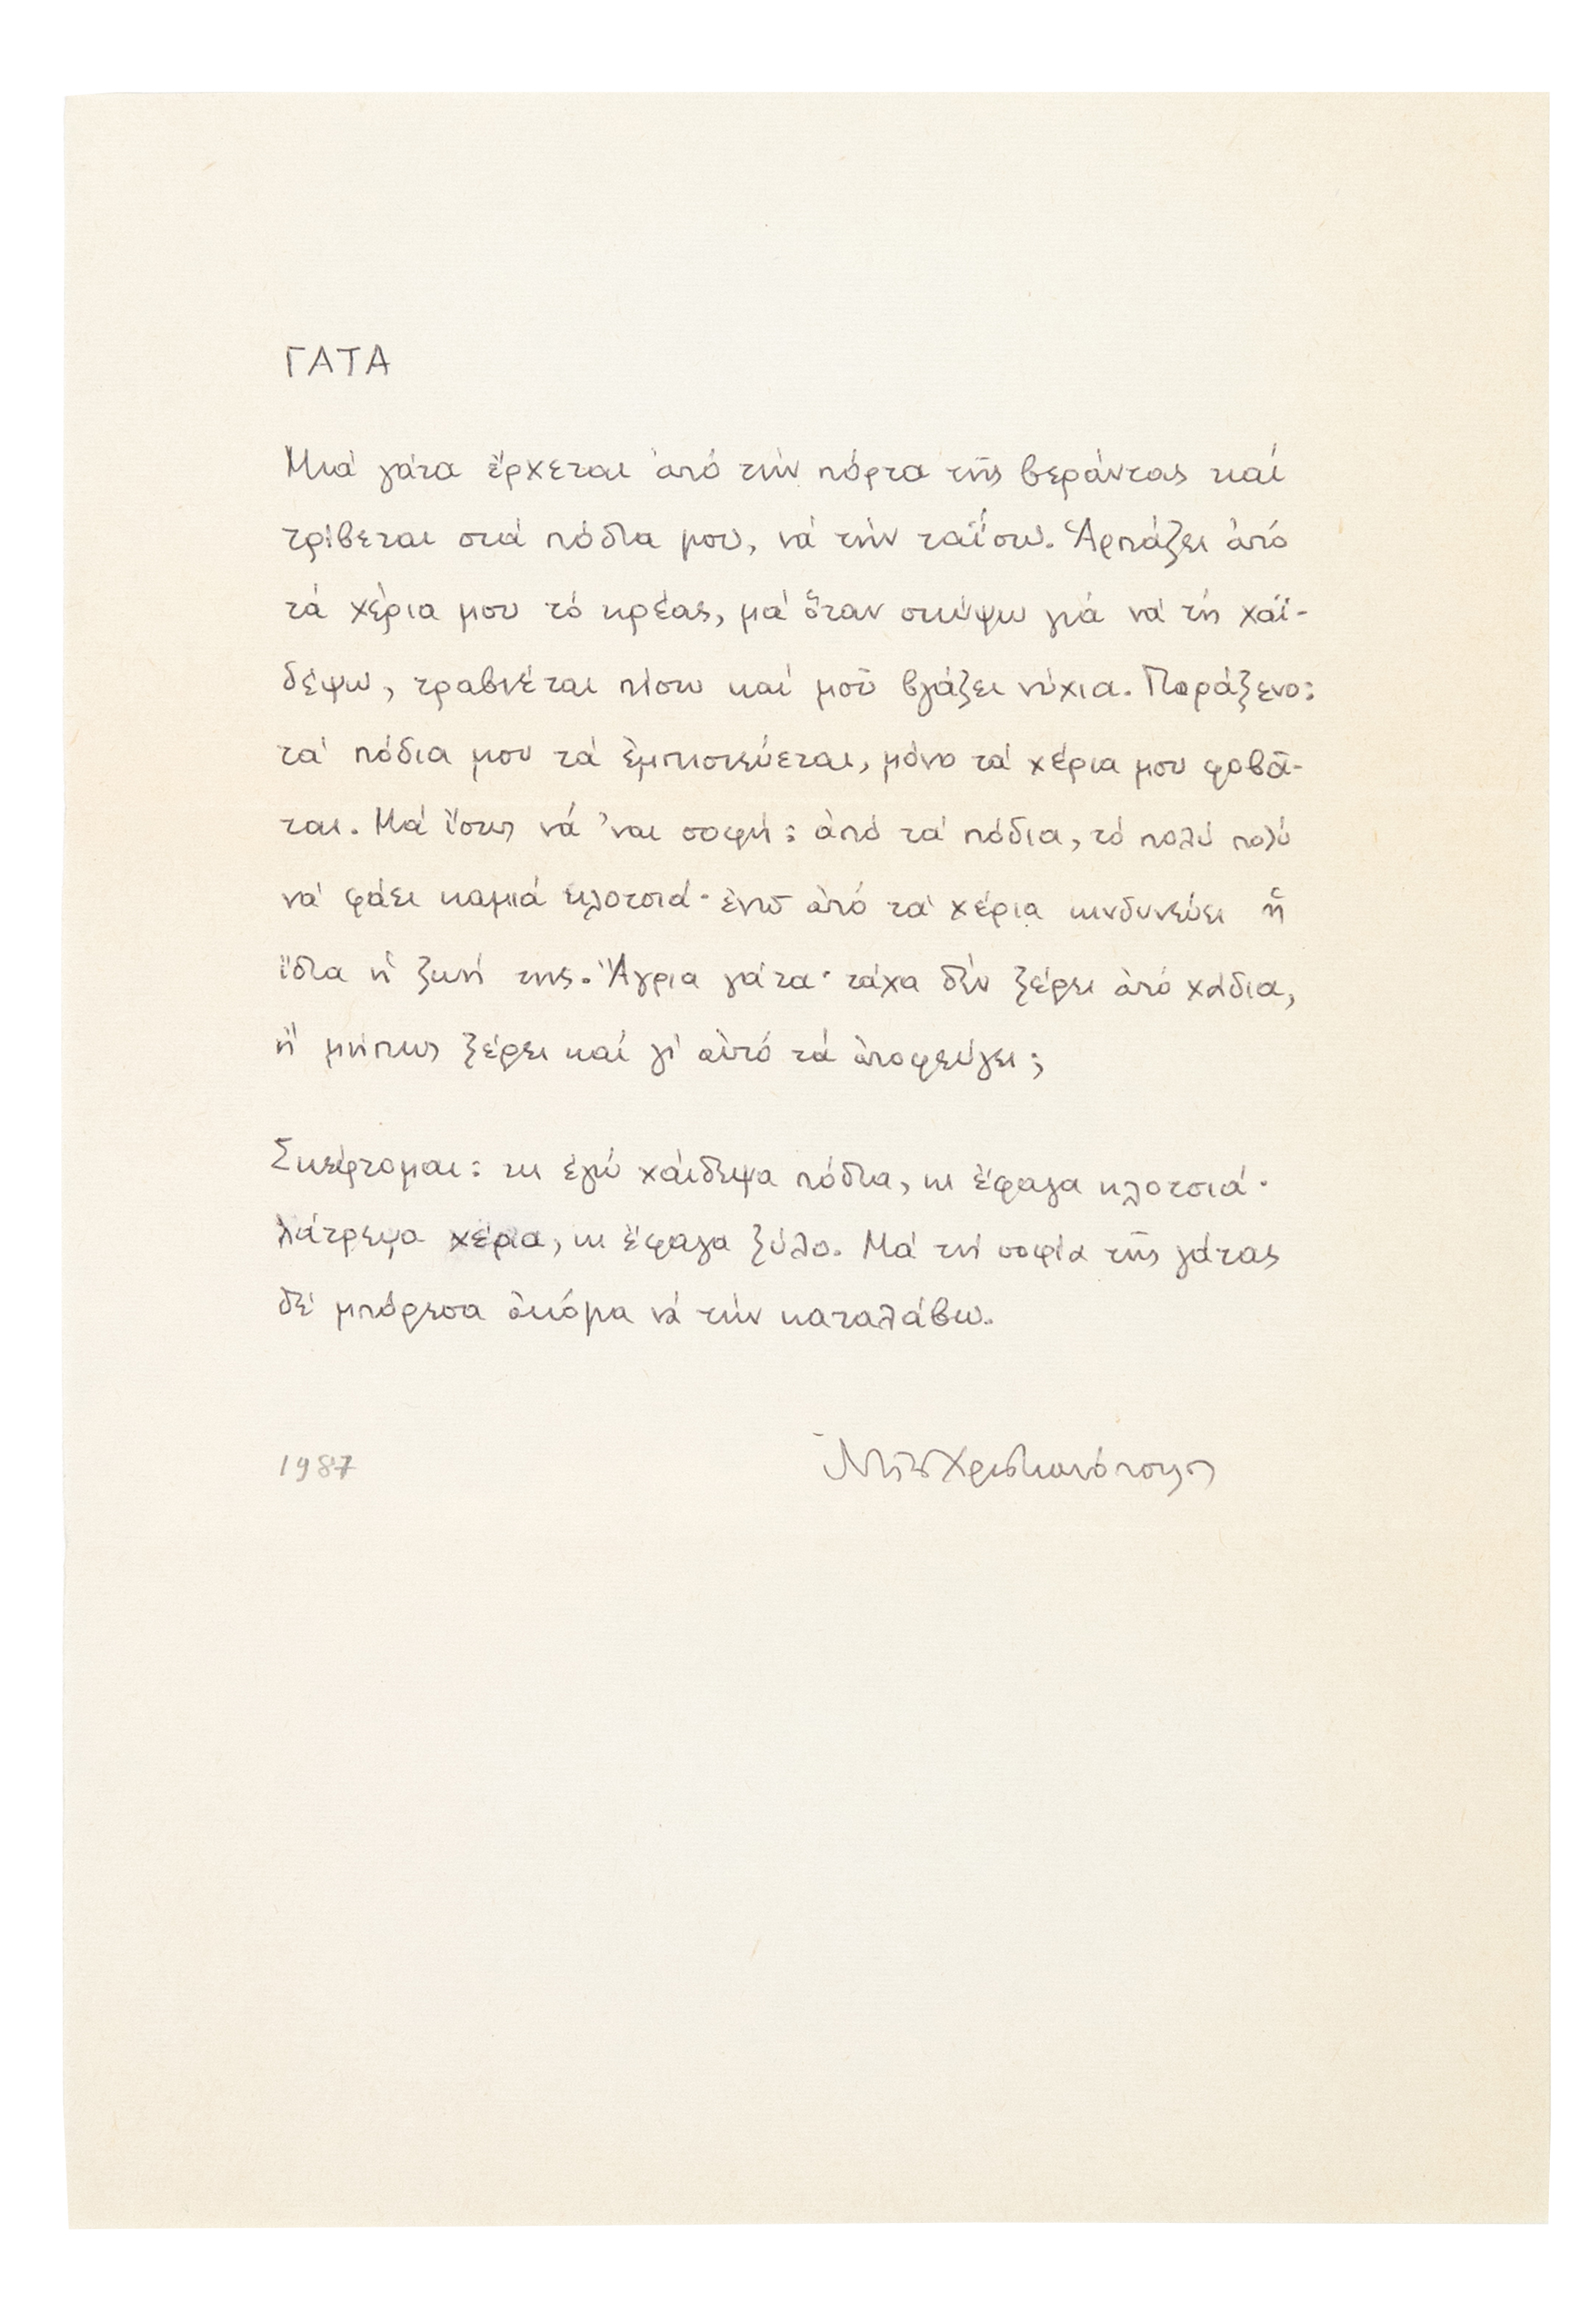 ΓΑΤΑ
Μιά γάτα ἔρχεται ἀπό τήν πόρτα τῆς βεράντας καί
τρίβεται στά πόδια μου, νά τήν ταΐσω. Ἁρπάζει ἀπό
τά χέρια μου τό κρέας, μά ὅταν σκύψω γιά νά τή χαϊ-
δέψω, τραβιέται πίσω καί μοῦ βγάζει νύχια. Παράξενο:
τά πόδια μου τά ἐμπιστεύεται, μόνο τά χέρια μου φοβᾶ-
ται. Μά ἴσως νά 'ναι σοφή: ἀπό τά πόδια, τό πολύ πολύ
νά φάει καμιά κλοτσιά· ἐνῶ ἀπό τά χέρια κινδυνεύει ἡ
ἴδια ἡ ζωή της. Ἄγρια γάτα· τάχα δέν ξέρει ἀπό χάδια,
ἤ μήπως ξέρει καί γι' αὐτό τά ἀποφεύγει;
Σκέφτομαι: κι ἐγώ χάιδεψα πόδια, κι ἔφαγα κλοτσιά·
λάτρεψα χέρια, κι ἔφαγα ξύλο. Μά τή σοφία τῆς γάτας
δέ μπόρεσα ἀκόμα νά τήν καταλάβω.
1987 Ντῖνος Χριστιανόπουλος